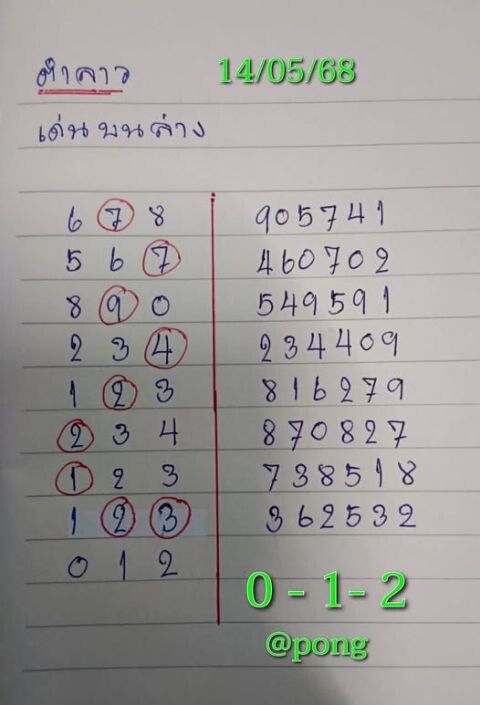 ทำลาว 14/05/68
เด่นบนล่าง
6 7 8 905741
5 6 7 460702
8 9 0 549591
2 3 4 234409
1 2 3 816279
2 3 4 870827
1 2 3 738518
1 2 3 362532
0 1 2
0 - 1- 2
@pong